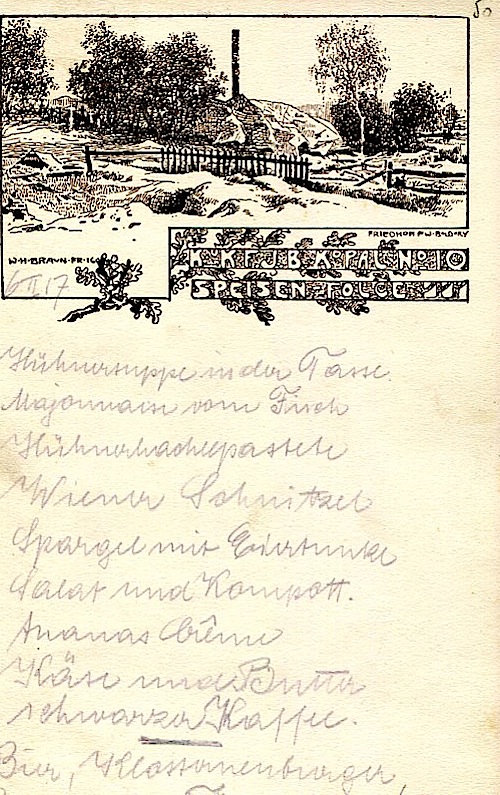 50
FRIEDHOF
W·H·BRAUN·FR·16
K K F J B KPAL N 10
6 II 17
SPEISEN FOLGE
Hühnersuppe in der Tasse.
Majonnaise vom Fisch
Hühnerhacheepastete
Wiener Schnitzel
Spargel mit Eiertunke
Salat und Kompott.
Ananas Crême
Käse und Butter
schwarzer Kaffee.
Bier, Klosterneuburger,